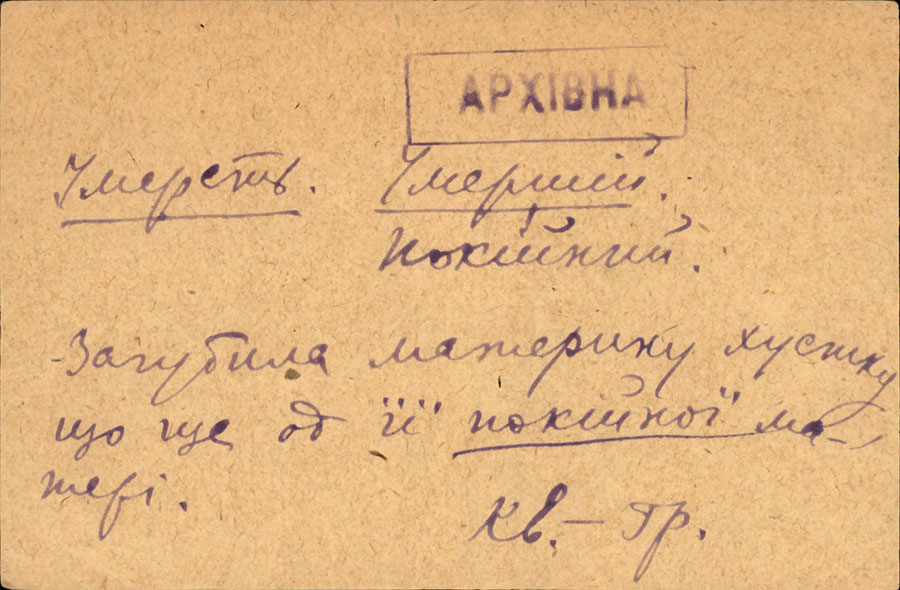 АРХІВНА
Умерсть. Умерший.
Покійний.
Загубила материну хустку
що ще од її покійної ма-
тері.
Кв.– Гр.